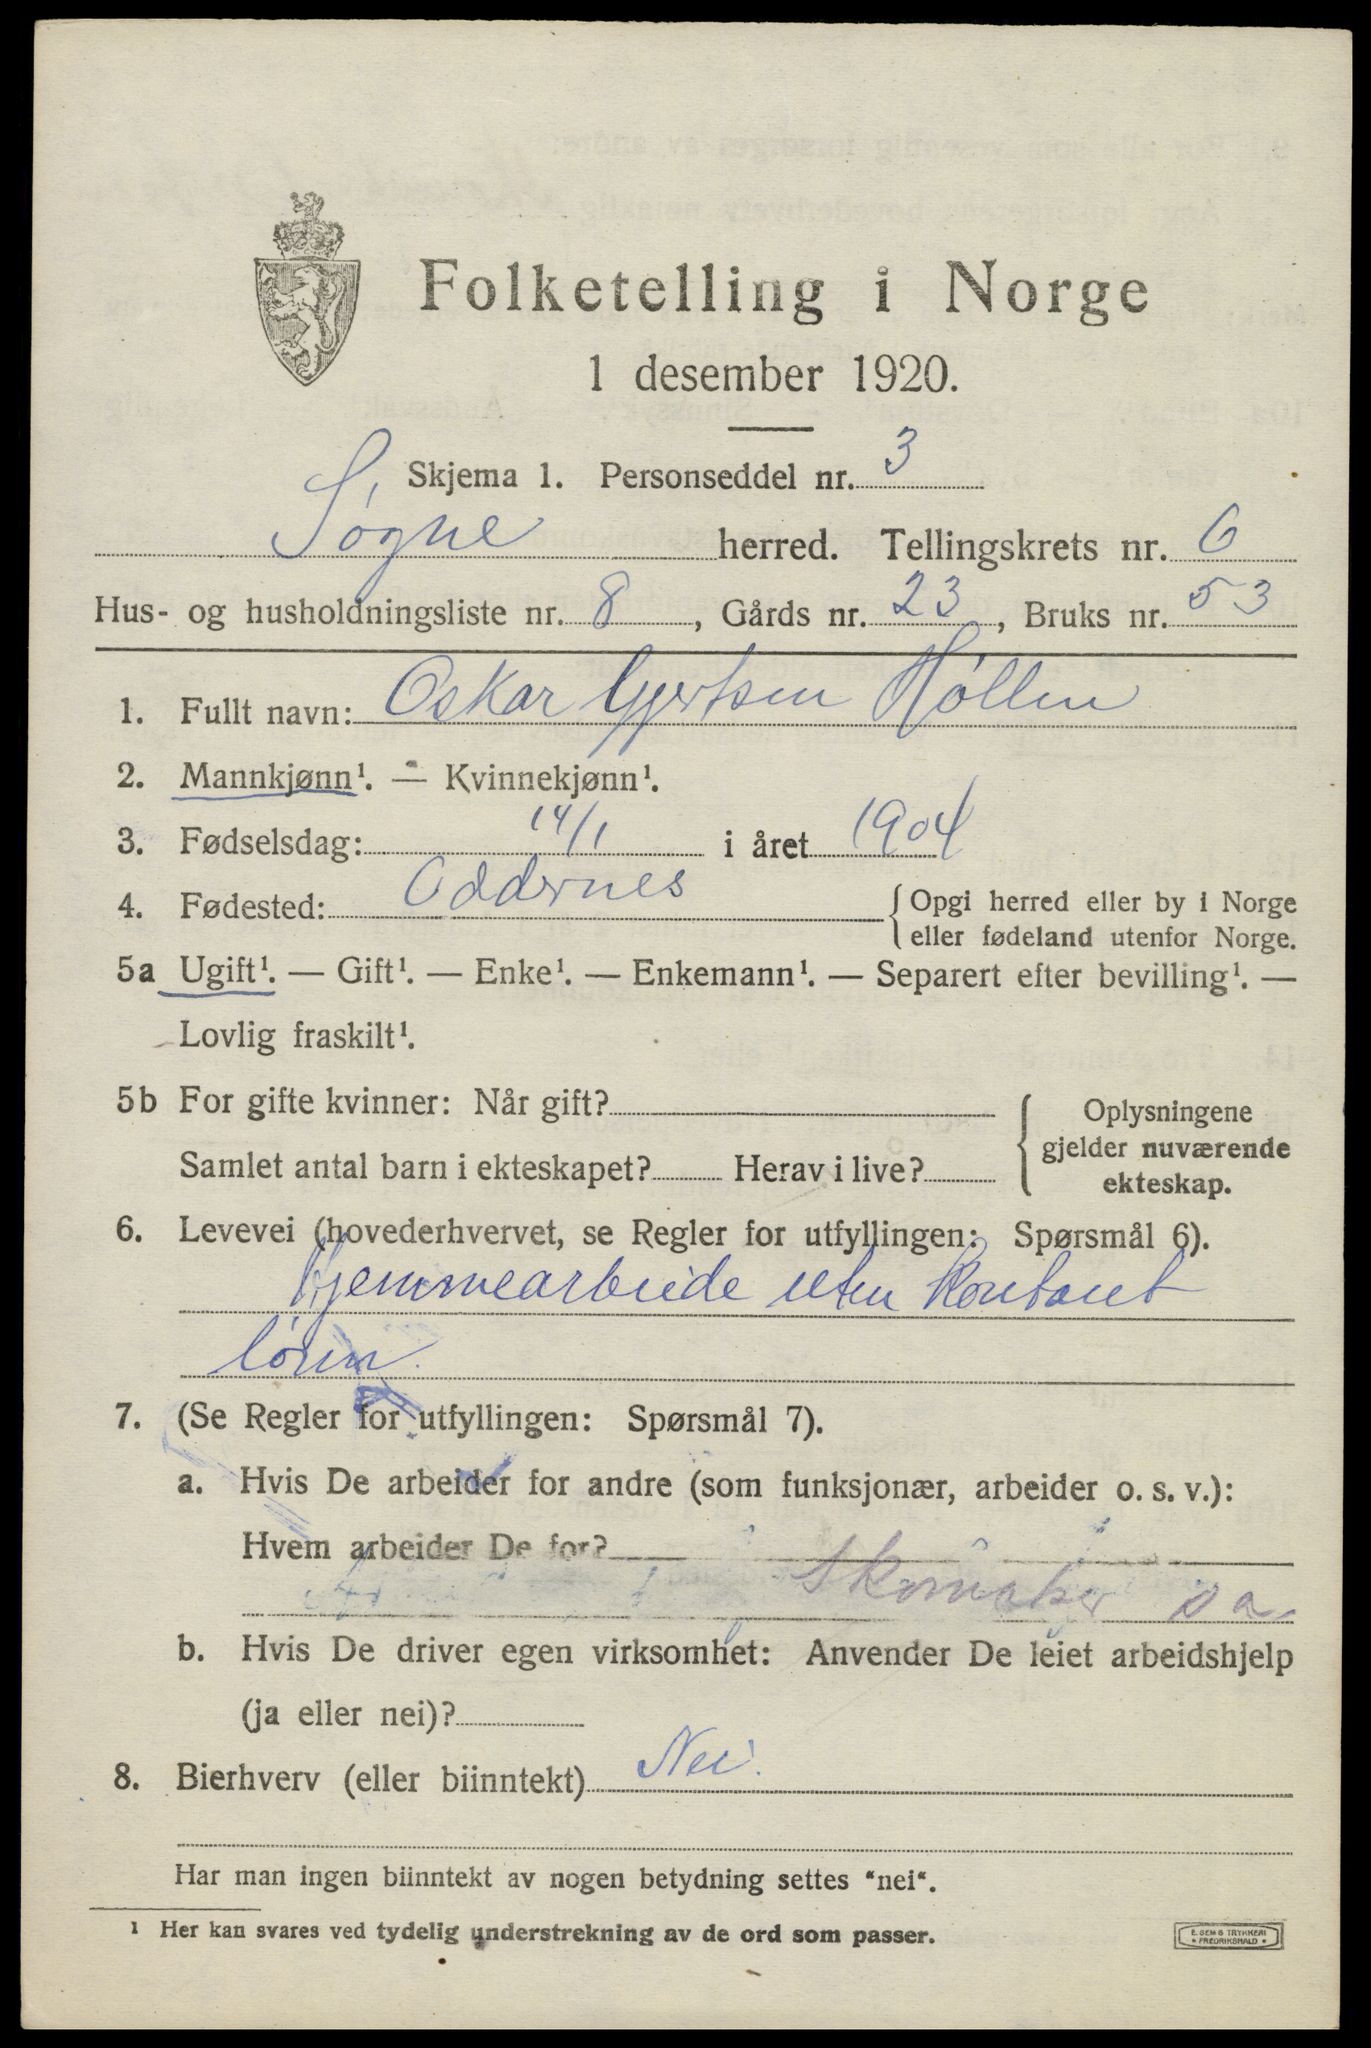 Folketelling i Norge
1 desember 1920.
Skjema 1. Personseddel nr. 3
Søgne herred. Tellingskrets nr. 6
Hus- og husholdningsliste nr. 8, Gårds nr. 23, Bruks nr. 53
1. Fullt navn: Oskar Gjertsen Høllen
2. Mannkjønn¹. — Kvinnekjønn¹.
3. Fødselsdag: 14/1 i året 1904
4. Fødested: Oddernes {Opgi herred eller by i Norge
eller fødeland utenfor Norge.
5a Ugift¹. — Gift¹. — Enke¹. — Enkemann¹. — Separert efter bevilling¹. —
Lovlig fraskilt¹.
5b For gifte kvinner: Når gift?
Samlet antal barn i ekteskapet? Herav i live?
{Oplysningene
gjelder nuværende
ekteskap.
6. Levevei (hovederhvervet, se Regler for utfyllingen: Spørsmål 6).
Hjemmearbeide uten Kontant
lønn.
7. (Se Regler for utfyllingen: Spørsmål 7).
a. Hvis De arbeider for andre (som funksjonær, arbeider o. s. v.):
Hvem arbeider De for?
Skomaker
b. Hvis De driver egen virksomhet: Anvender De leiet arbeidshjelp
(ja eller nei)?
8. Bierhverv (eller biinntekt) Nei.
Har man ingen biinntekt av nogen betydning settes "nei".
¹ Her kan svares ved tydelig understrekning av de ord som passer.
E. SEMS TRYKKERI
* FREDRIKSHALD *